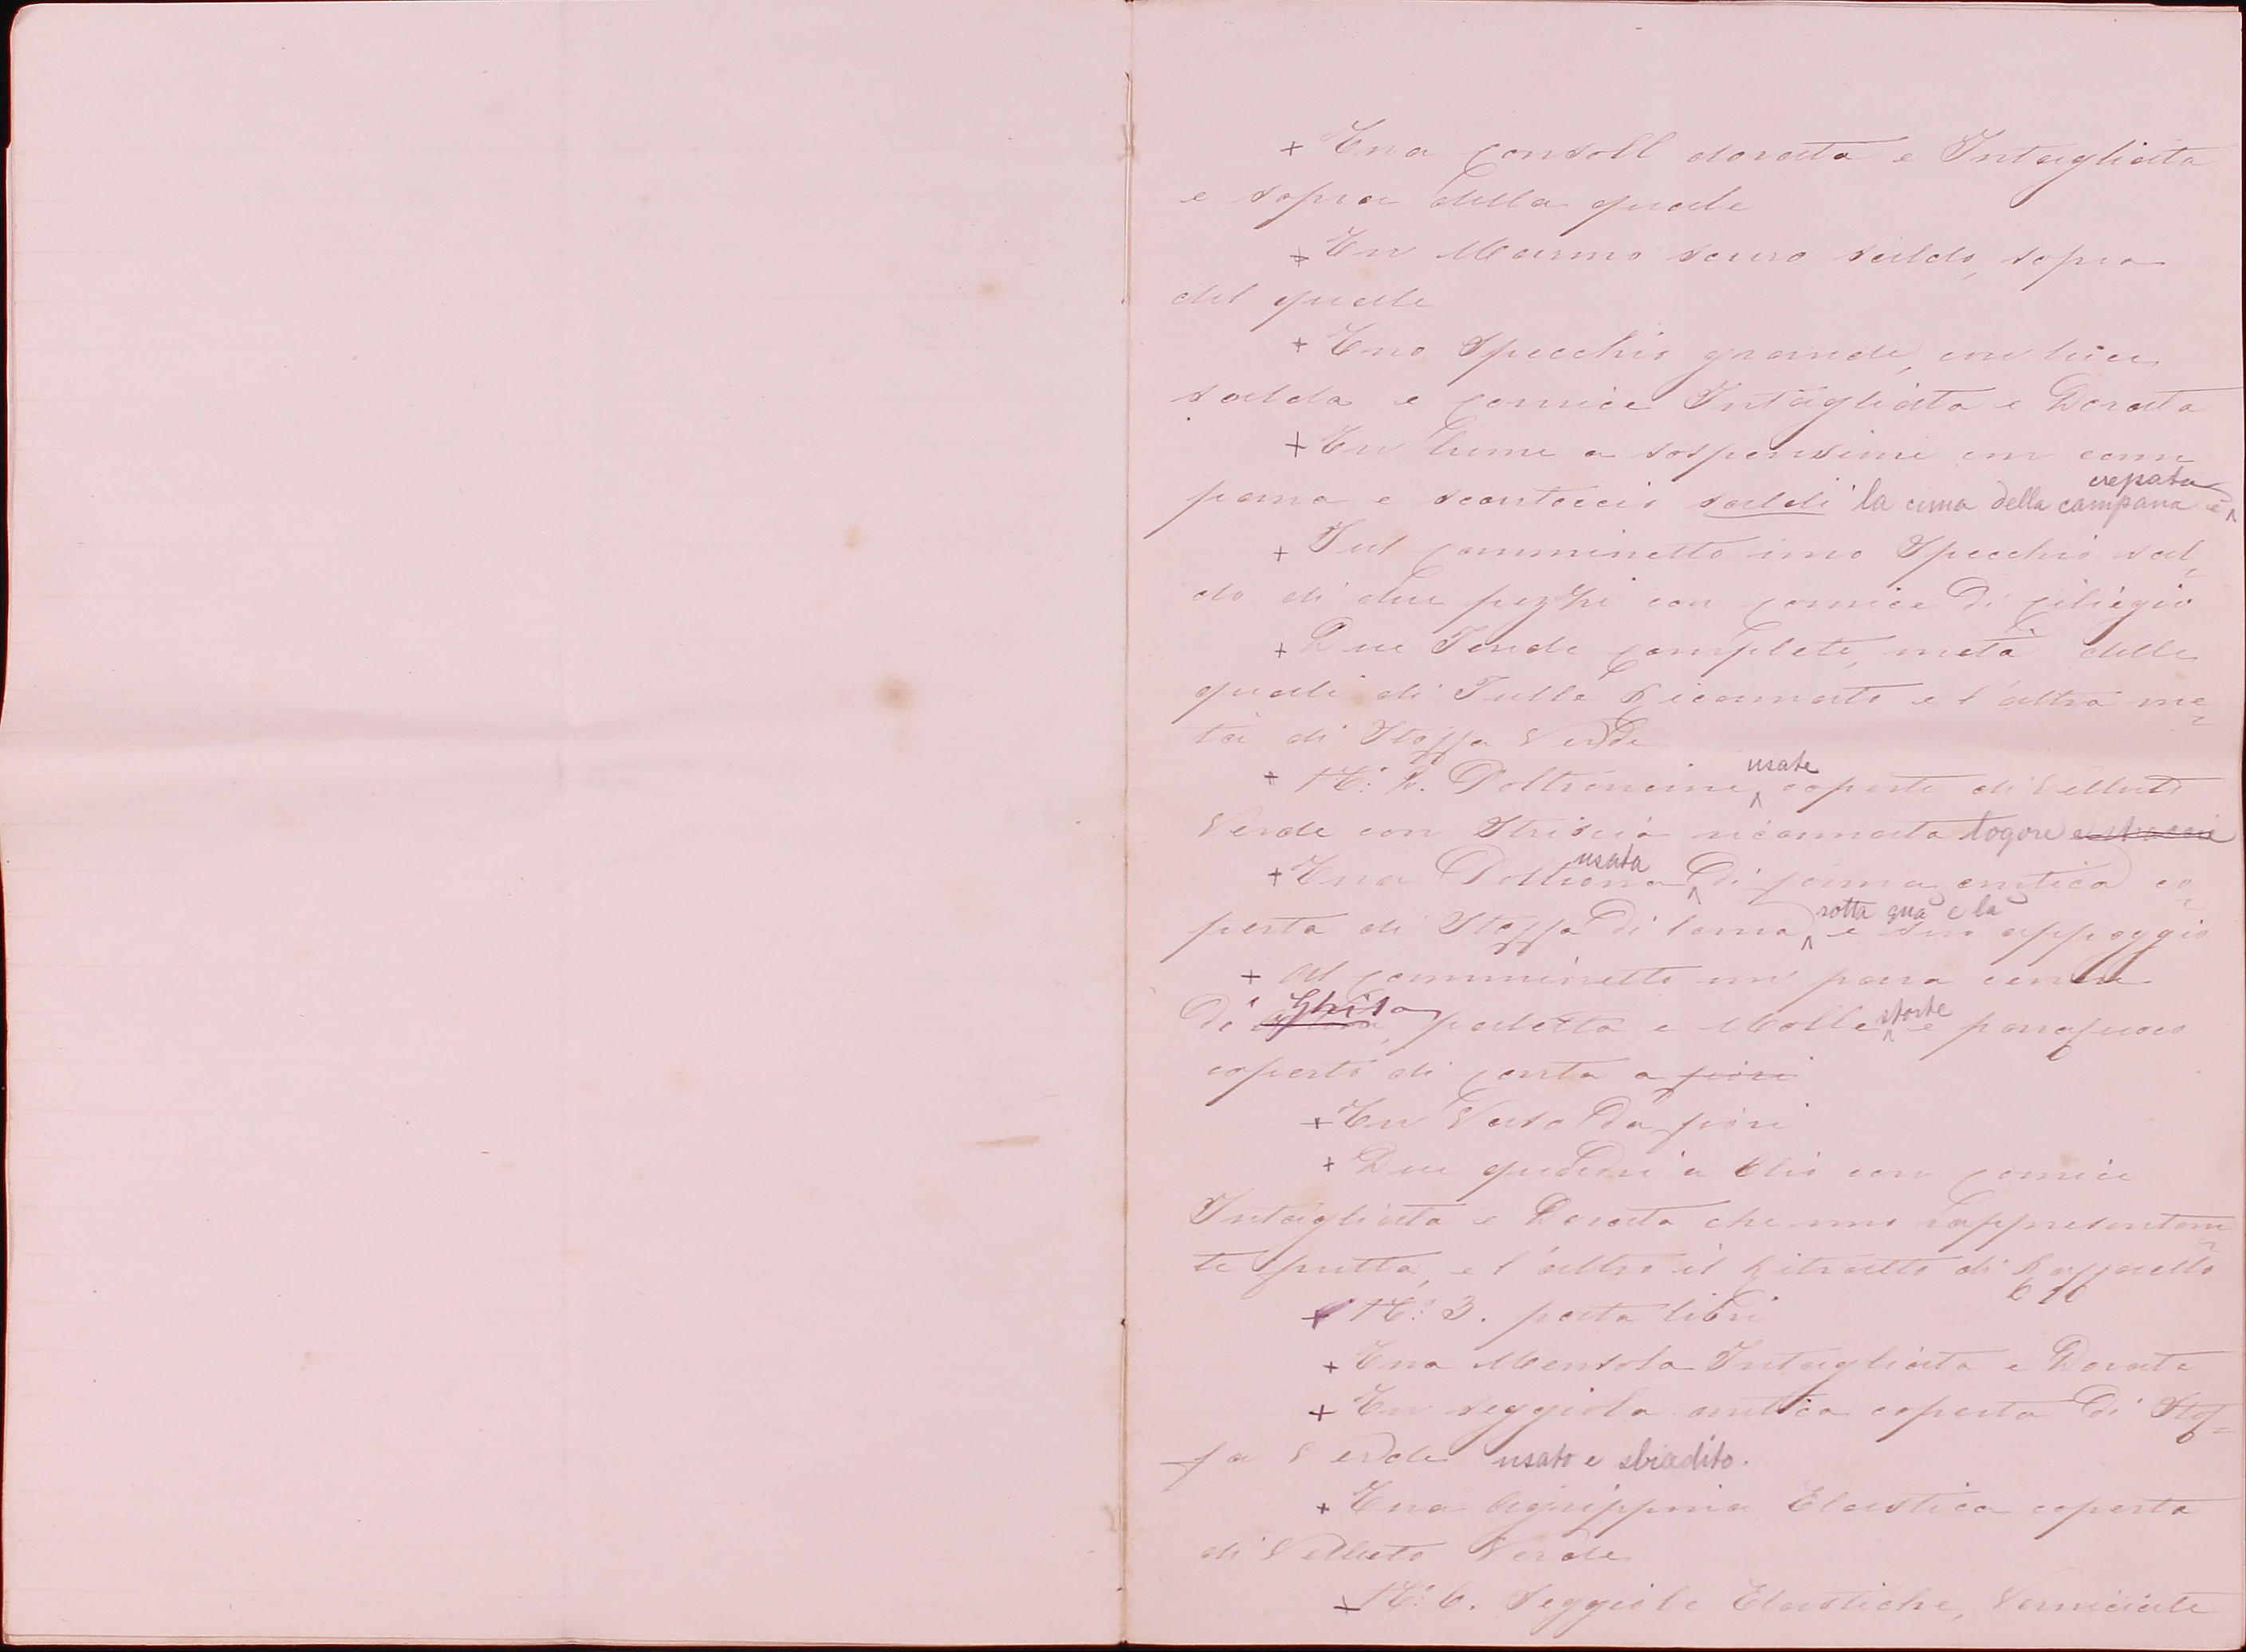 + Una Consoll dorata e Intagliata
e sopra della quale
+ Un Marmo scuro saldo, sopra
del quale
+ Uno Specchio grande, con luce
salda e Cornice Intagliata e Dorata
+ Un lume a sospensione con cam
pana e scartoccio saldi la cima della campana è crepata
+ Sul Camminetto uno Specchio sal,
do di due pezzi con Cornice Di Ciliegio
+ Due Tende Complete, metà delle
quali di Tulle Ricamato e l'altra me
tà di Stoffa Verde
+ N.° 2. Poltroncine usate coperte di Velluto
Verde con Striscia ricamata logore
+ Una Poltrona usata Di forma antica co
perta di Stoffa Di lana rotta qua e la e suo appoggio
+ Al Camminetto un para cenere
Di Ghisa, paletta e Molle storte e parafuoco
coperto di Carta a fiori
+ Un Vaso Da fiori
+ Due quadri a Olio con Cornice
Intagliata e Dorata che uno rappresentan
te frutta, e l'altro il Ritratto di Raffaello
+ N.° 3. porta libri
+ Una Mensola Intagliata e Dorata
+ Un seggiola antica coperta Di Stof
fa Verde usato e sbiadito.
+ Una Agrippina Elastica coperta
di Velluto Verde
+ N.° 6. Seggiole Elastiche, Verniciate